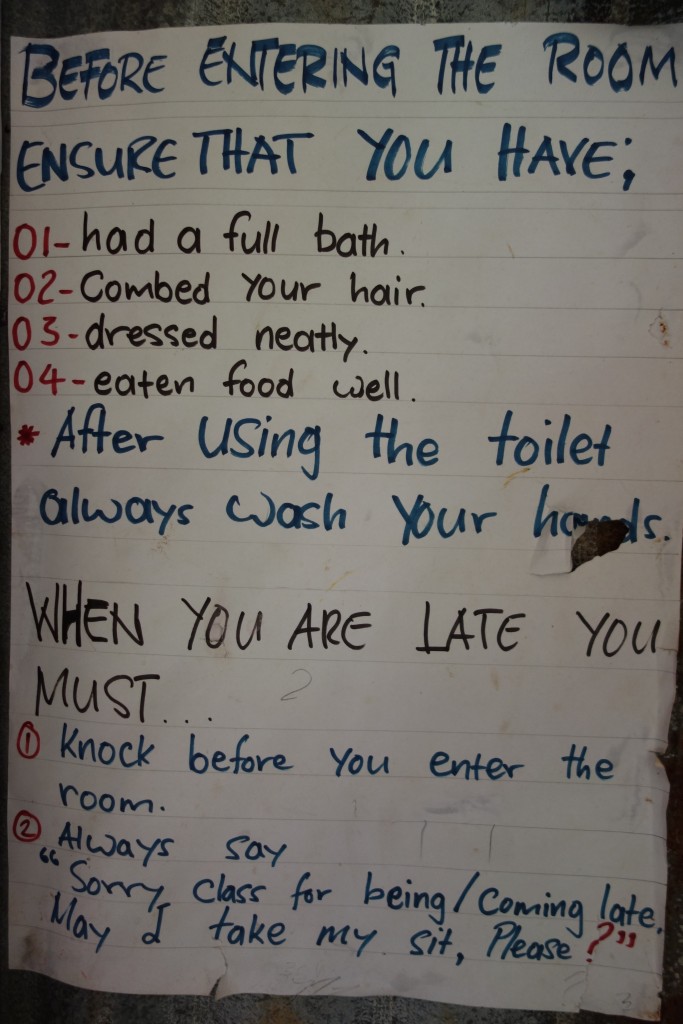 BEFORE ENTERING THE ROOM
ENSURE THAT YOU HAVE;
01- had a full bath.
02- Combed your hair.
03- dressed neatly.
04- eaten food well.
* After using the toilet
always wash your hands.
WHEN YOU ARE LATE YOU
MUST...
① Knock before you enter the
room.
② Always say
“Sorry, Class for being/Coming late.
May I take my sit, Please?”